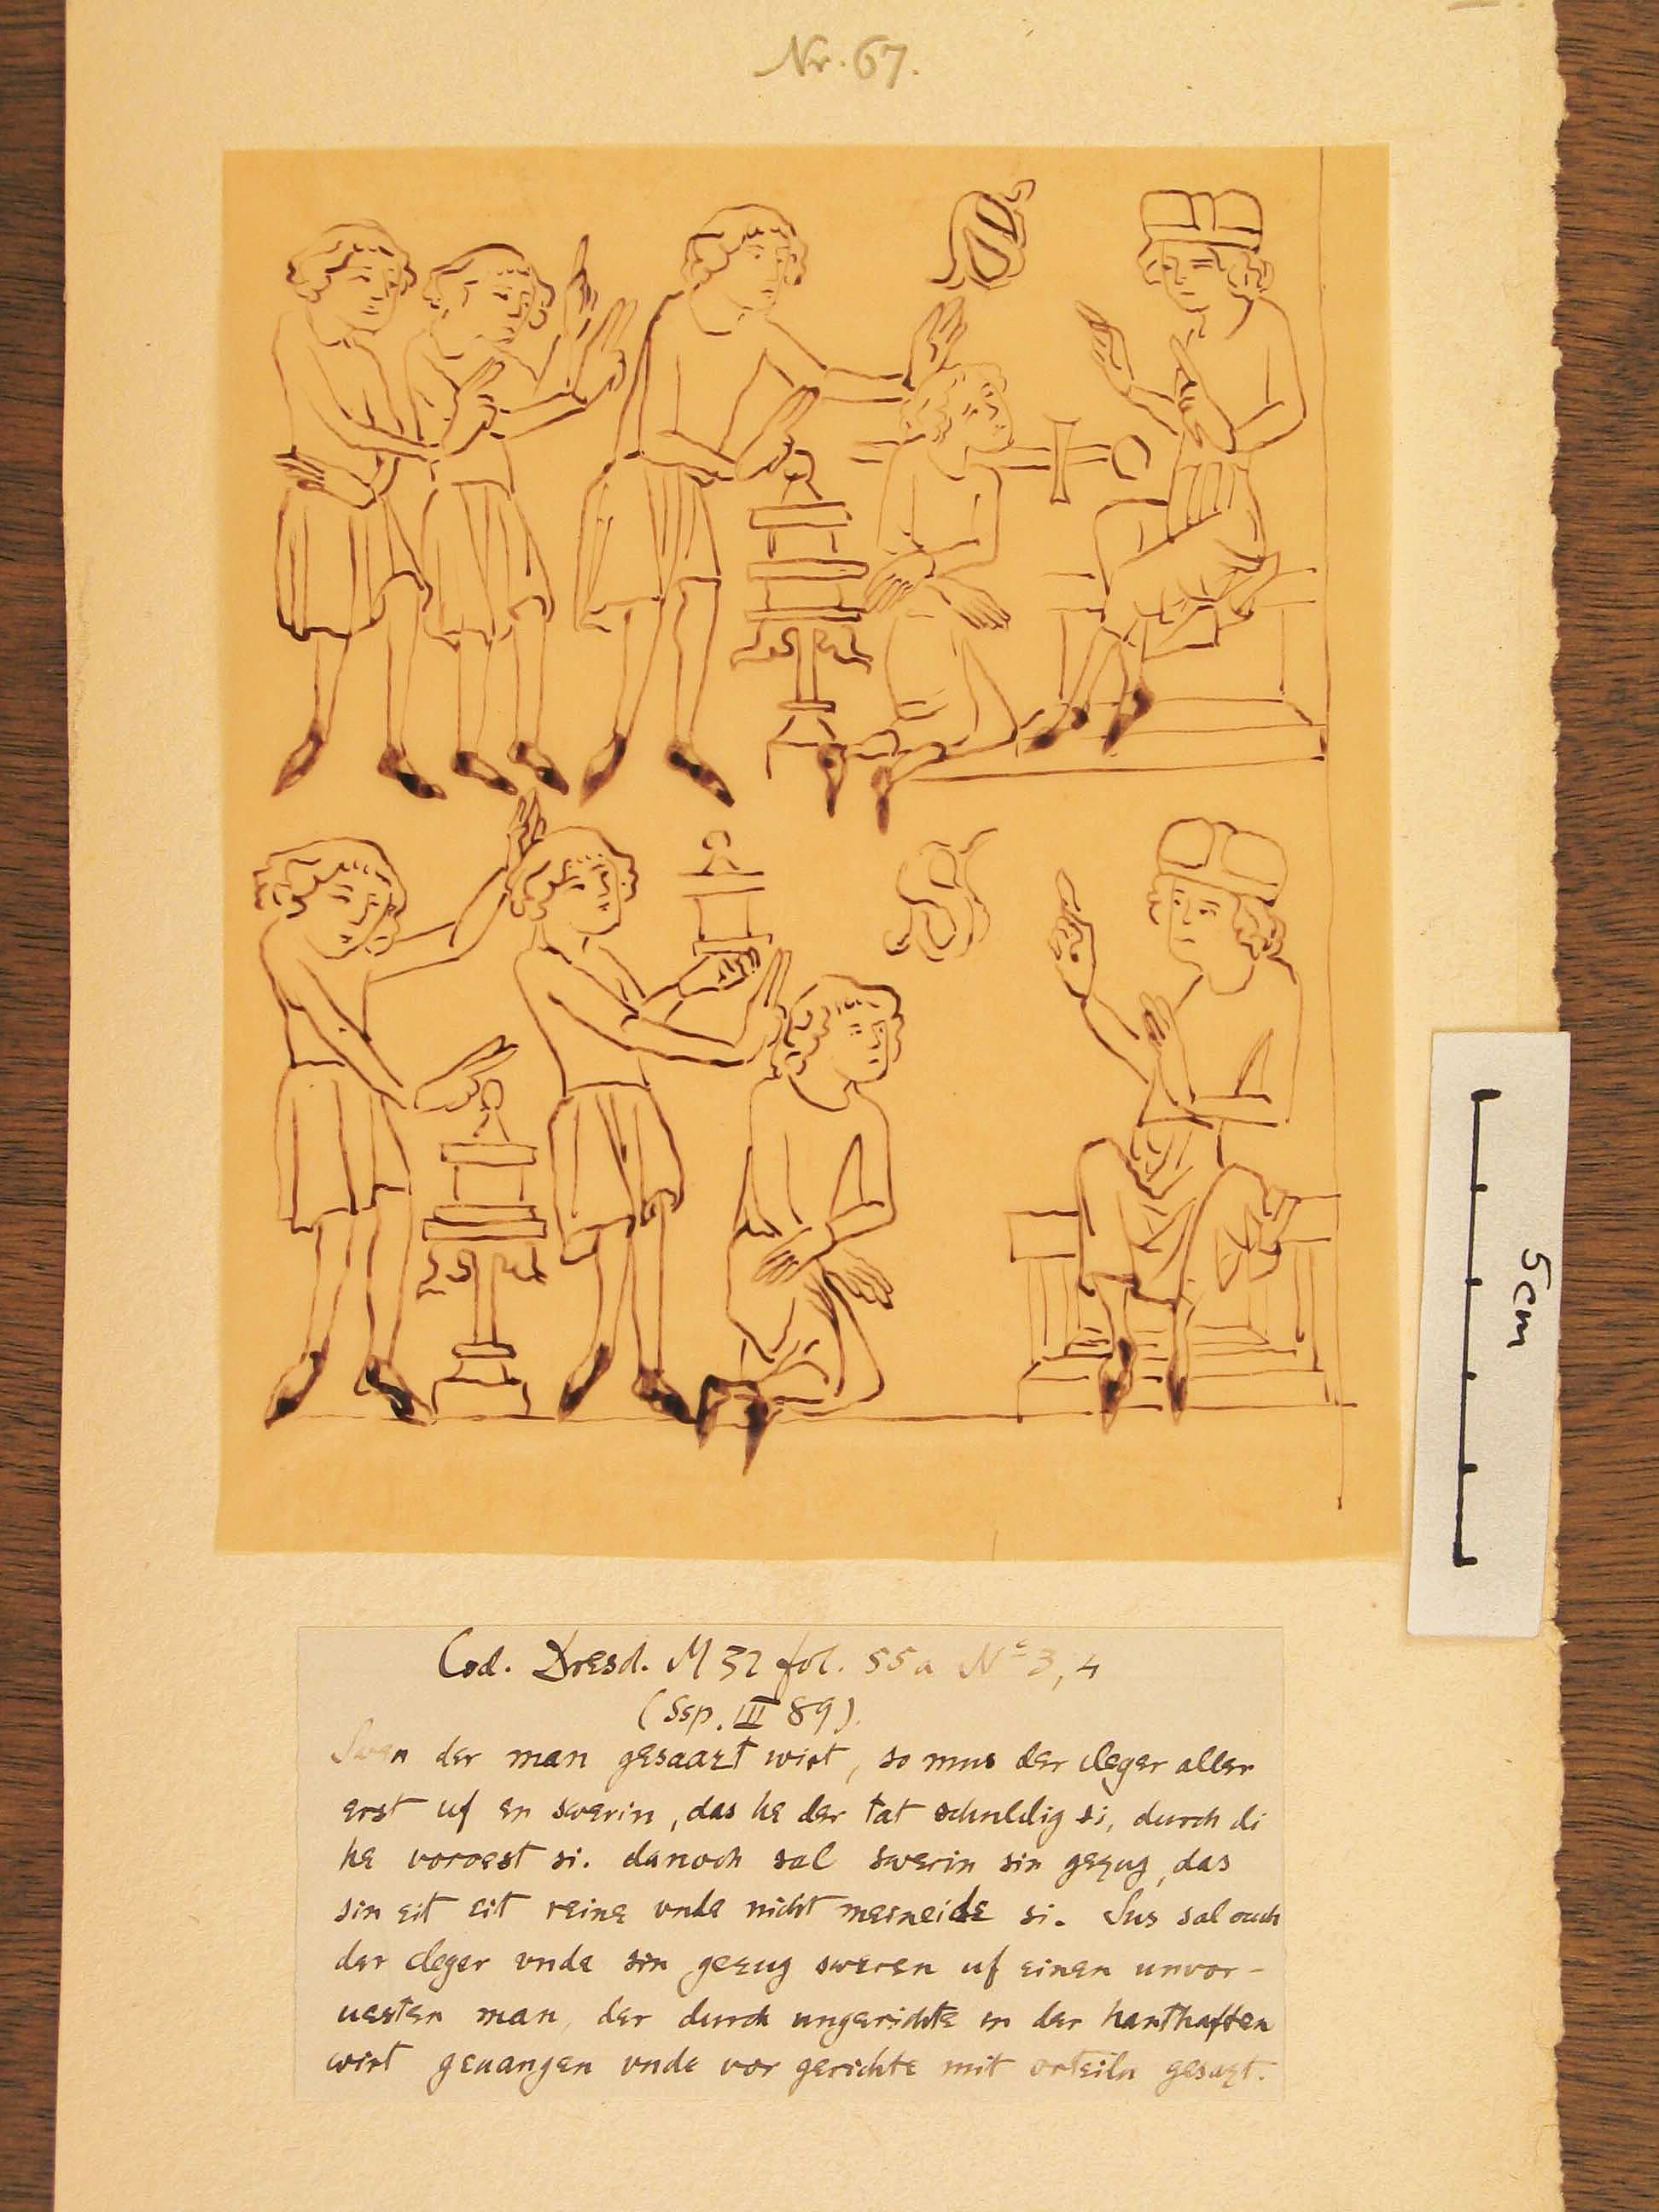 Nr. 67.
5cm
Cod. Dresd. M 32 fol. 55a No 3, 4
(Ssp. III 89).
Swen der man gesaazt wirt, so mus der cleger aller
erst uf en swerin, das he der tat schuldig si, durch di
he voruest si. danoch sal swerin sin gezug, das
sin eit eit reine unde nicht meineide si. Sus sal ouch
der cleger unde sin gezug sweren uf einen unvor-
uesten man, der durch ungerichte in der hanthaften
wirt geuangen unde vor gerichte mit orteiln gesazt.